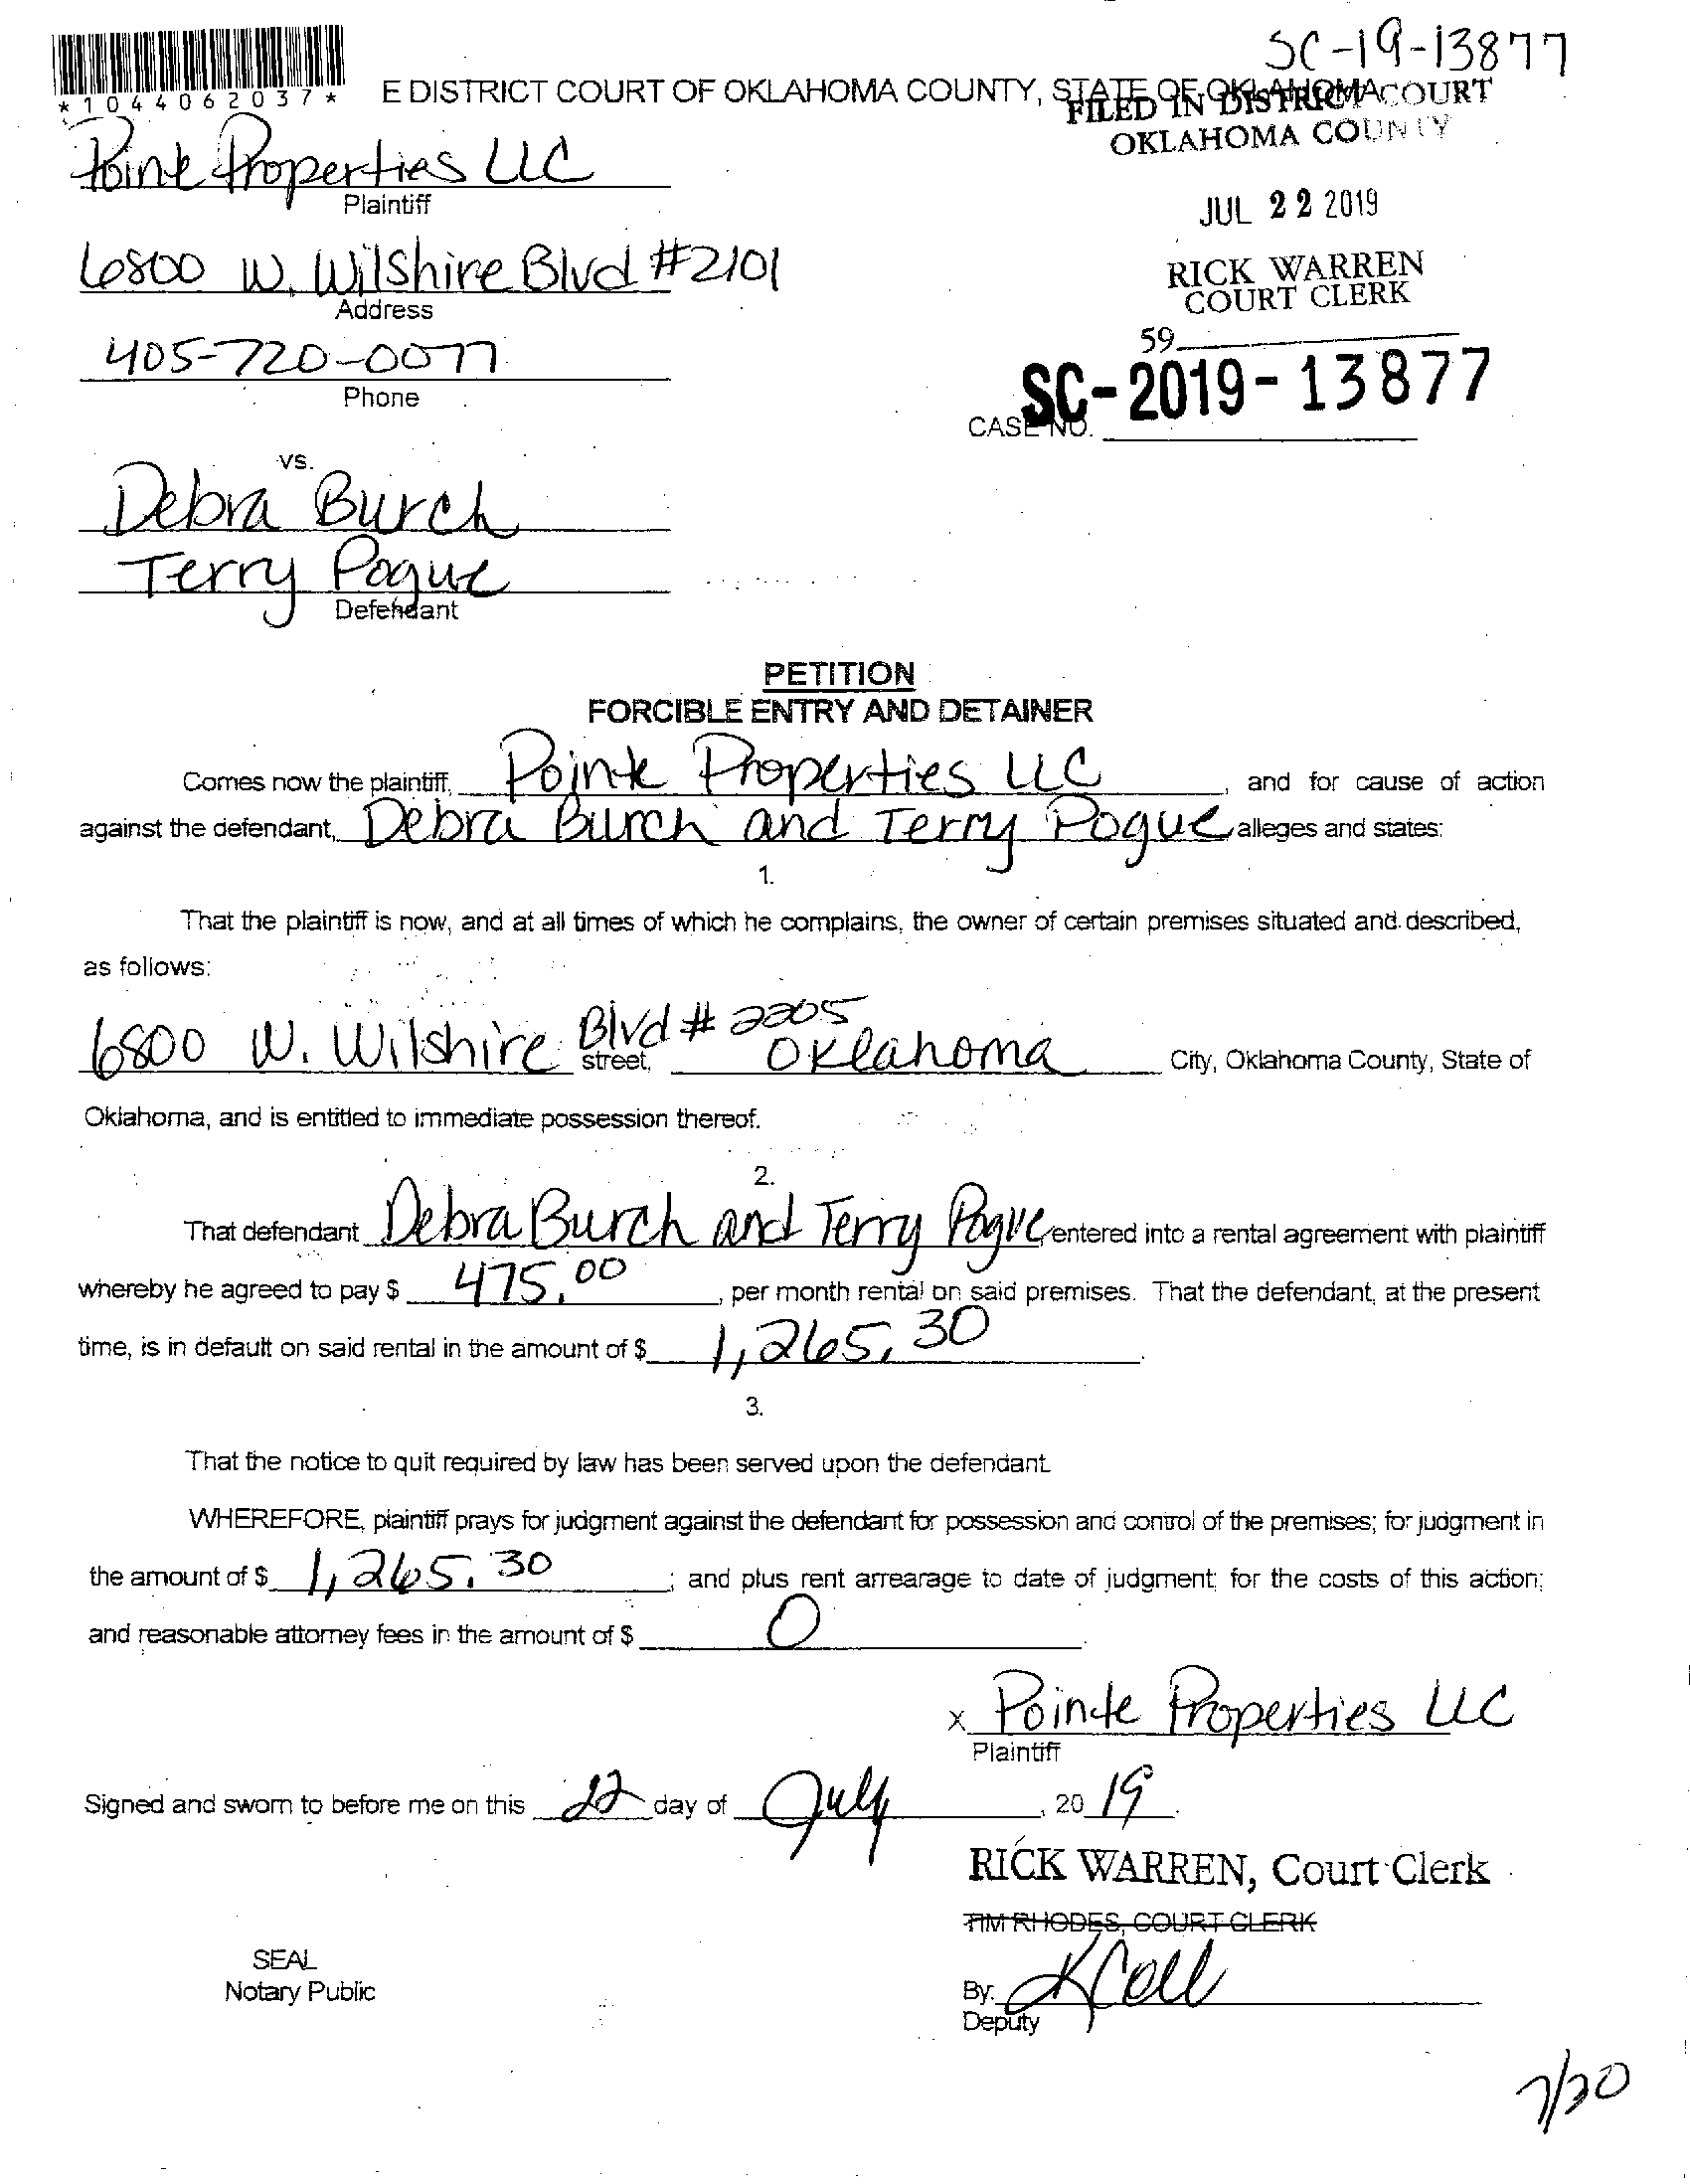 SC-19-13877
*1044062037*
E DISTRICT COURT OF OKLAHOMA COUNTY, STATE OF OKLAHOMA
FILED IN DISTRICT COURT
OKLAHOMA COUNTY
JUL 22 2019
RICK WARREN
COURT CLERK
59
SC-2019-13877
CASE NO.
Pointe Properties LLC
Plaintiff
6800 W. Wilshire Blvd #2101
Address
405-720-0077
Phone
vs.
Debra Burch
Terry Pogue
Defendant
PETITION
FORCIBLE ENTRY AND DETAINER
Comes now the plaintiff, Pointe Properties LLC, and for cause of action
against the defendant, Debra Burch and Terry Pogue alleges and states:
1.
That the plaintiff is now, and at all times of which he complains, the owner of certain premises situated and described,
as follows:
6800 W. Wilshire Blvd # 2205 street, Oklahoma City, Oklahoma County, State of
Oklahoma, and is entitled to immediate possession thereof.
2.
That defendant Debra Burch and Terry Pogue entered into a rental agreement with plaintiff
whereby he agreed to pay $ 475.00, per month rental on said premises. That the defendant, at the present
time, is in default on said rental in the amount of $ 1,265.30.
3.
That the notice to quit required by law has been served upon the defendant.
WHEREFORE, plaintiff prays for judgment against the defendant for possession and control of the premises; for judgment in
the amount of $ 1,265.30; and plus rent arrearage to date of judgment; for the costs of this action;
and reasonable attorney fees in the amount of $ 0.
X Pointe Properties LLC
Plaintiff
Signed and sworn to before me on this 22 day of July, 20 19.
RICK WARREN, Court Clerk
TIM RHODES, COURT CLERK
SEAL
Notary Public
By:
Deputy
7/30